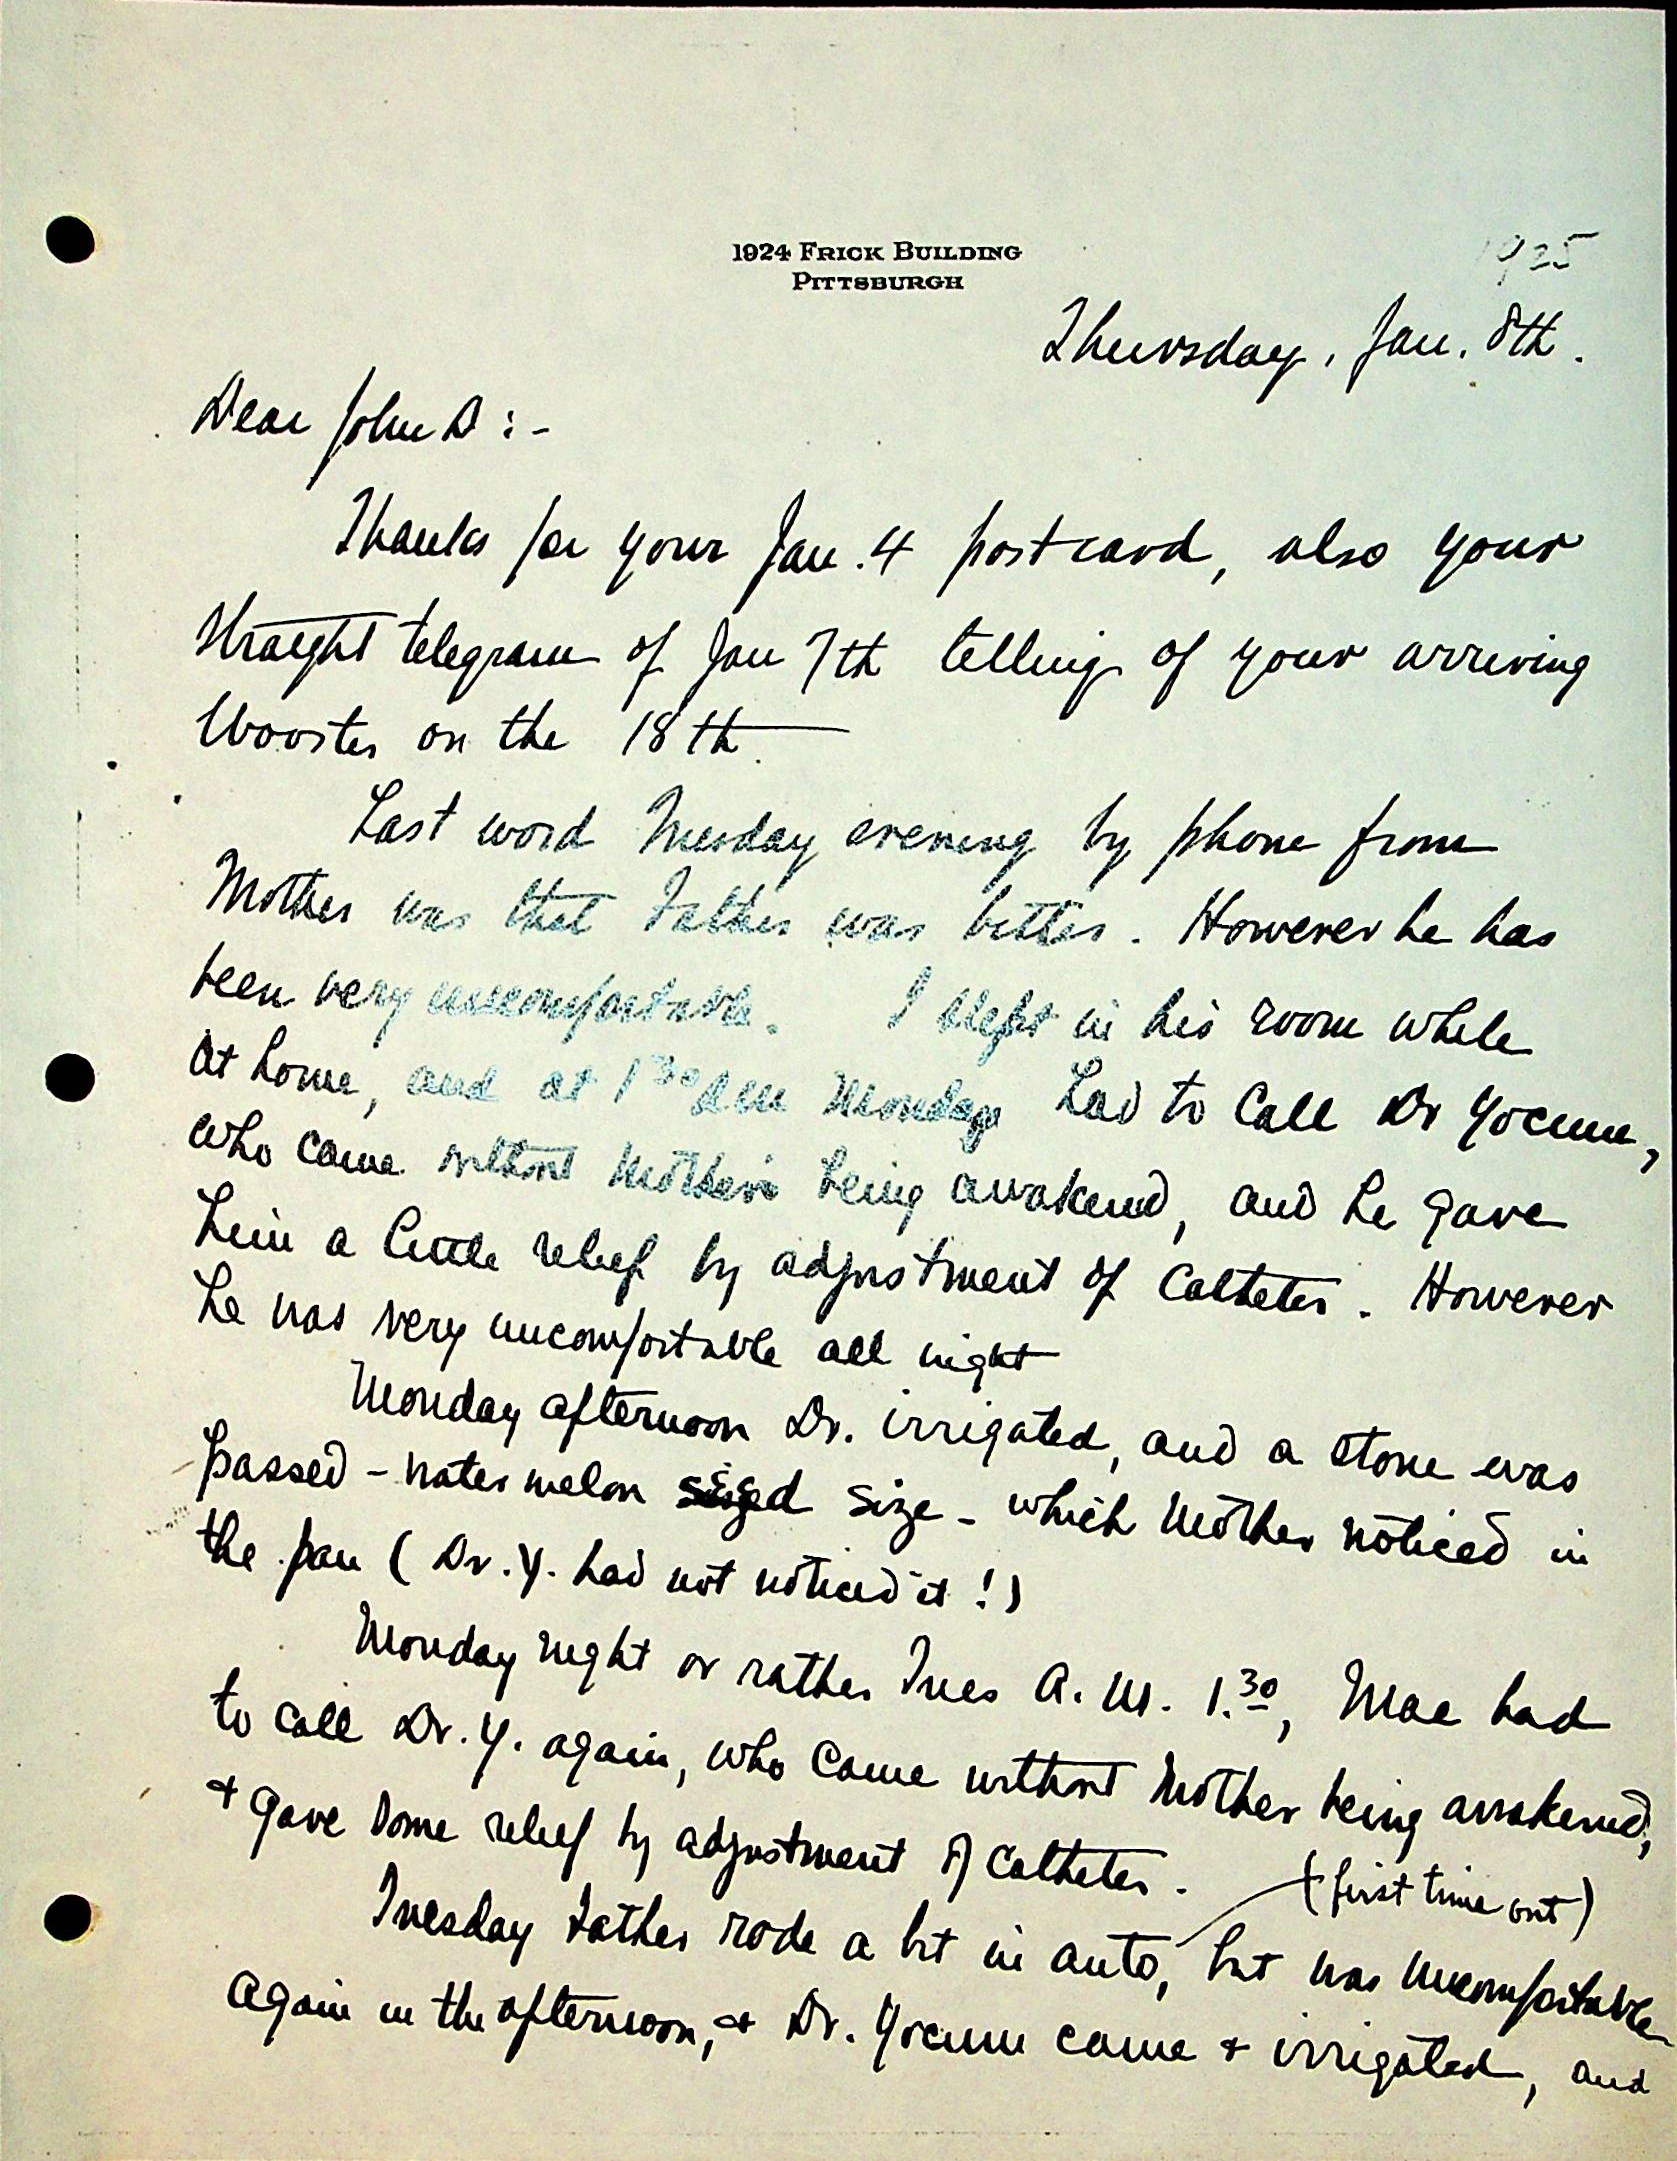 1924 FRICK BUILDING
PITTSBURGH
1925
Thursday, Jan. 8th.
Dear John D :-
Thanks for your Jan. 4 postcard, also your
straight telegram of Jan 7th telling of your arriving
Wooster on the 18th.
Last word Tuesday evening by phone from
Mother was that Father was better. However he has
been very uncomfortable. I slept in his room while
at home, and at 1 30 AM Monday had to call Dr Yocum,
who came without Mother's being awakened, and he gave
him a little relief by adjustment of Catheter. However
he was very uncomfortable all night
Monday afternoon Dr. irrigated, and a stone was
passed - water melon sized size - which Mother noticed in
the pan ( Dr. Y. had not noticed it ! )
Monday night or rather Tues A. M. 1.30, Mae had
to call Dr. Y. again, who came without Mother being awakened,
+ gave some relief by adjustment of catheter.
(first time out)
Tuesday Father rode a bit in auto, but was uncomfortable
again in the afternoon, + Dr. Yocum came + irrigated, and